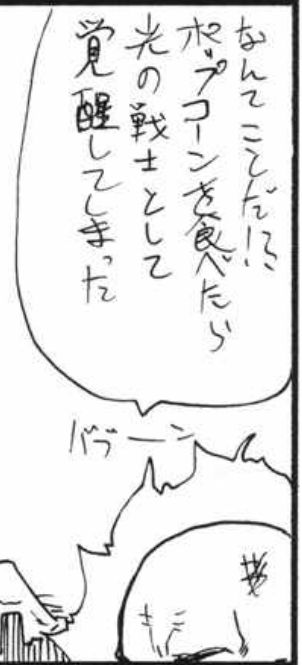 なんてことだ!?
ポップコーンを食べたら
光の戦士として
覚醒してしまった
バブーン